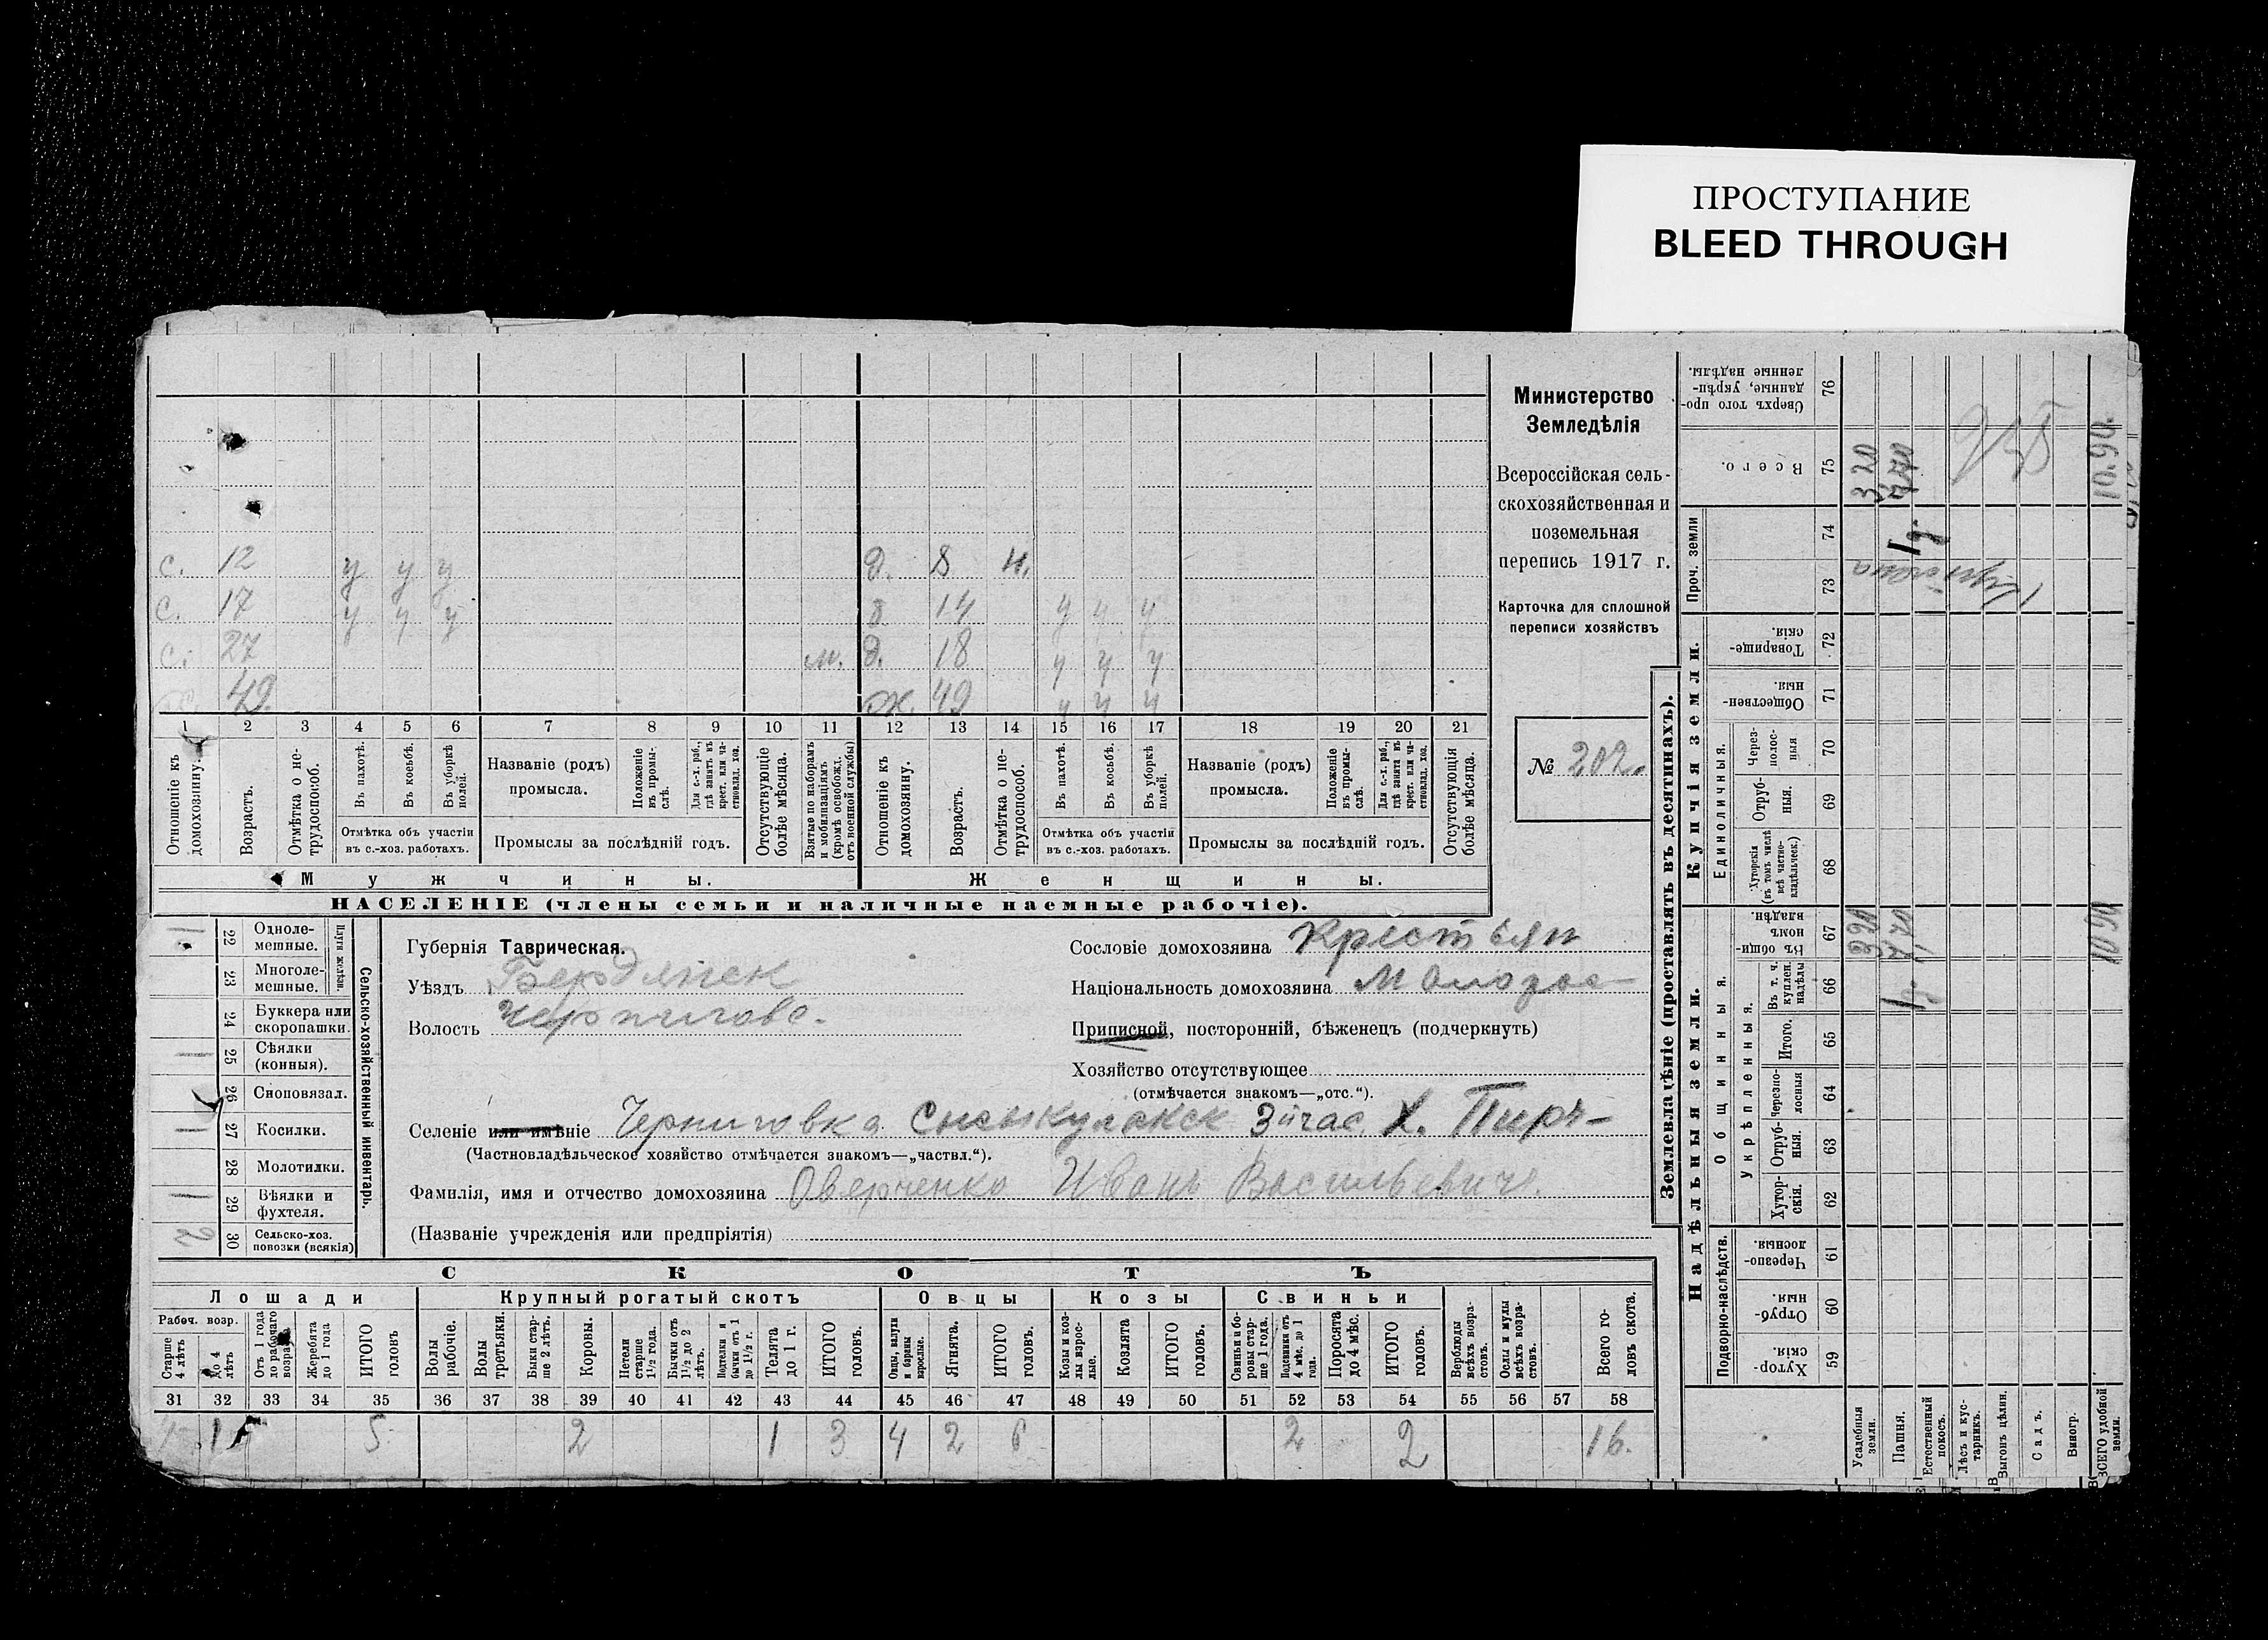 ПРОСТУПАНИЕ
BLEED THROUGH
с. 12 у у у д. 8 н.
с. 17 у у у д. 14 у у у
с. 27 м. д. 18 у у у
49 ж. 49 у у у
1 2 3 4 5 6 7 8 9 10 11 12 13 14 15 16 17 18 19 20 21
Отношеніе къ домохозяину.
Возрастъ.
Отмѣтка о нетрудоспособ.
Въ пахотѣ.
Въ косьбѣ.
Въ уборкѣ полей.
Отмѣтка объ участіи въ с.-хоз. работахъ.
Названіе (родъ) промысла.
Положеніе въ промыслѣ.
Для с.-х. раб., гдѣ занятъ въ крест. или частновлад. хоз.
Промыслы за послѣдній годъ.
Отсутствующіе болѣе мѣсяца.
Взятые по наборамъ и мобилизаціямъ (кромѣ освобожд. отъ военной службы)
Отношеніе къ домохозяину.
Возрастъ.
Отмѣтка о нетрудоспособ.
Въ пахотѣ.
Въ косьбѣ.
Въ уборкѣ полей.
Отмѣтка объ участіи въ с.-хоз. работахъ.
Названіе (родъ) промысла.
Положеніе въ промыслѣ.
Для с.-х. раб., гдѣ занята въ крест. или частновлад. хоз.
Промыслы за послѣдній годъ.
Отсутствующія болѣе мѣсяца.
Мужчины.
Женщины.
НАСЕЛЕНІЕ (члены семьи и наличные наемные рабочіе).
Министерство
Земледѣлія
Всероссійская сель-
скохозяйственная и
поземельная
перепись 1917 г.
Карточка для сплошной
переписи хозяйствъ
№ 202.
Сельско-хозяйственный инвентарь.
Плуги желѣзн.
22 Одноле-мешные. 1
23 Многоле-мешные.
24 Буккера или скоропашки.
25 Сѣялки (конныя). 1
26 Сноповязал.
27 Косилки. 1
28 Молотилки.
29 Вѣялки и фухтеля. 1
30 Сельско-хоз. повозки (всякія) 2
Губернія Таврическая.
Уѣздъ Бердянск
Волость Чернигов.
Сословіе домохозяина Крестьян
Національность домохозяина Малорос
Приписной, посторонній, бѣженецъ (подчеркнуть)
Хозяйство отсутствующее
(отмѣчается знакомъ—„отс.“).
Селеніе или имѣніе Черниговка
(Частновладѣльческое хозяйство отмѣчается знакомъ—„частвл.“).
Фамилія, имя и отчество домохозяина Оверченко Иванъ Васильевич.
(Названіе учрежденія или предпріятія)
СКОТЪ
Лошади
Крупный рогатый скотъ
Овцы
Козы
Свиньи
Рабоч. возр.
Старше 4 лѣтъ
До 4 лѣтъ
Отъ 1 года до рабочаго возраста
Жеребята до 1 года
ИТОГО головъ
Волы рабочіе.
Волы третьяки.
Быки старше 2 лѣтъ.
Коровы.
Нетели старше 1½ года.
Бычки отъ 1½ до 2 лѣтъ.
Подтелки и бычки отъ 1 до 1½ г.
Телята до 1 г.
ИТОГО головъ.
Овцы, валухи и бараны взрослые.
Ягнята.
ИТОГО головъ.
Козы и козлы взрослые.
Козлята
ИТОГО головъ.
Свиньи и боровы старше 1 года.
Подсвинки отъ 4 мѣс. до 1 года.
Поросята до 4 мѣс.
ИТОГО головъ.
Верблюды всѣхъ возрастовъ.
Ослы и мулы всѣхъ возрастовъ.
Всего головъ скота.
31 32 33 34 35 36 37 38 39 40 41 42 43 44 45 46 47 48 49 50 51 52 53 54 55 56 57 58
5 2 1 3 4 2 6 2 2 16.
Землевладѣніе (проставлять въ десятинахъ).
Купчія земли.
Надѣльныя земли.
Проч. земли
Единоличныя.
Общинныя.
Укрѣпленныя.
Подворно-наслѣдств.
Сверхъ того проданные, укрѣпленные надѣлы. 76
Всего. 75
74
73
Товарищескія. 72
Общественныя. 71
Черезполосныя 70
Отрубныя. 69
Хуторскія (въ томъ числѣ всѣ частновладѣльческ.) 68
Въ общинномъ владѣн. 67
Въ т. ч. куплен. надѣлы 66
Итого. 65
Черезполосныя 64
Отрубныя. 63
Хуторскія. 62
Черезполосныя 61
Отрубныя. 60
Хуторскія. 59
Усадебныя земли. 320
Пашня.
Естественный покосъ.
Лѣсъ и кустарникъ.
Выгонъ цѣлин.
Садъ.
Виногр.
ВСЕГО удобной земли. 1090 10.90.